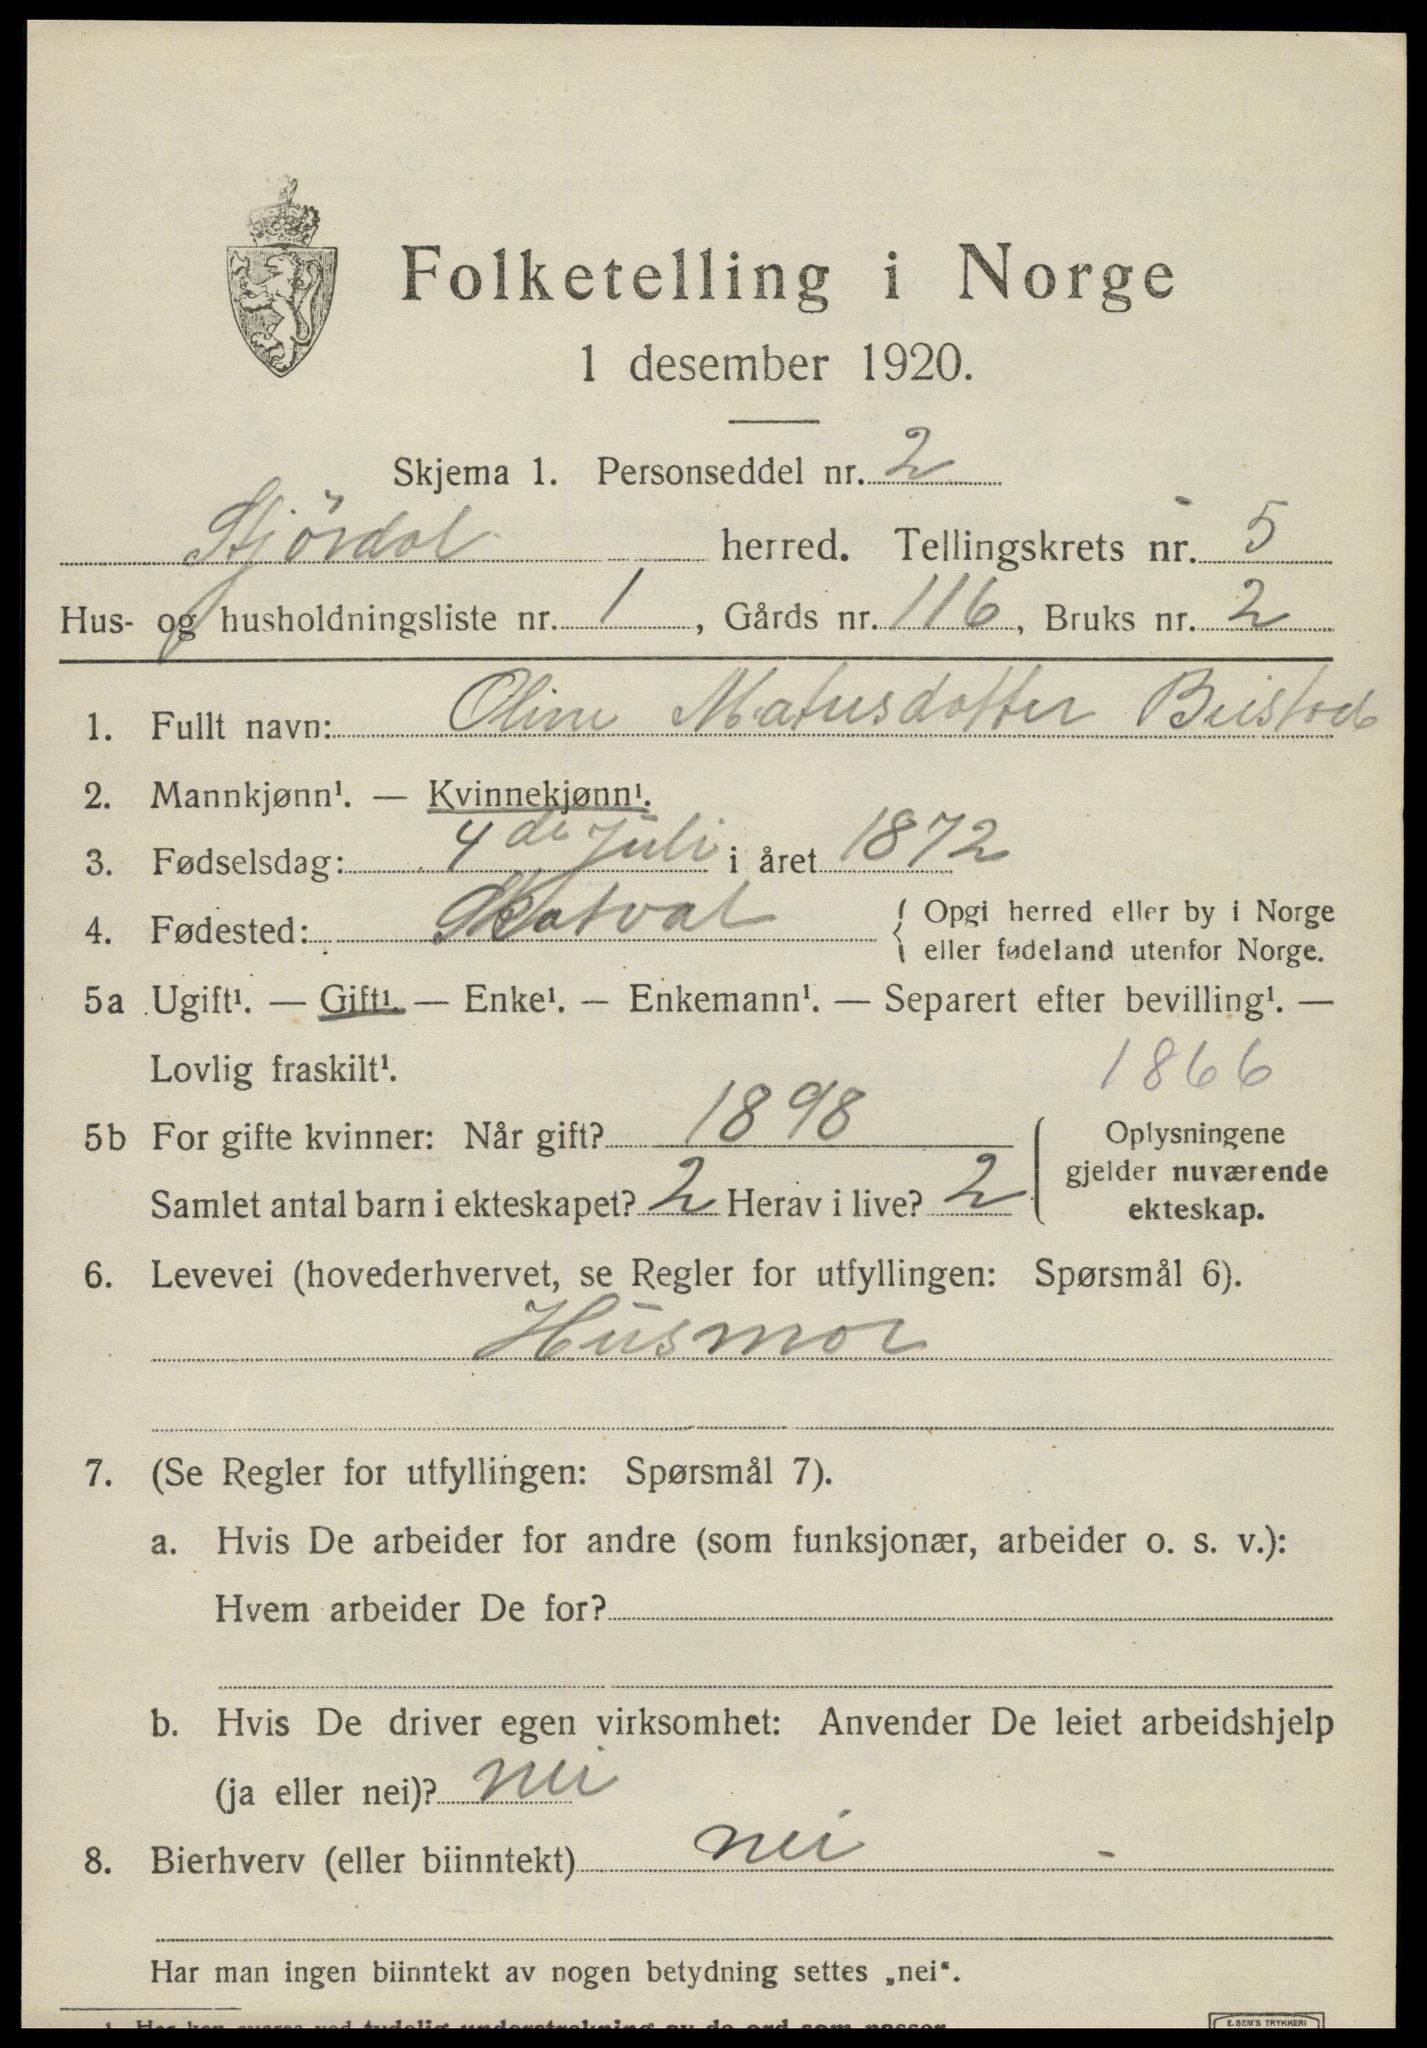 Folketelling i Norge
1 desember 1920.
Skjema 1. Personseddel nr. 2
Stjördal herred. Tellingskrets nr. 5
Hus- og husholdningsliste nr. 1, Gårds nr. 116, Bruks nr. 2
1. Fullt navn: Oline Matusdotter
2. Mannkjønn¹. — Kvinnekjønn¹.
3. Fødselsdag: 4 de Juli i året 1872
4. Fødested: Skatval { Opgi herred eller by i Norge
eller fødeland utenfor Norge.
5a Ugift¹. — Gift¹. — Enke¹. — Enkemann¹. — Separert efter bevilling¹. —
Lovlig fraskilt¹.
1866
5b For gifte kvinner: Når gift? 1898
Samlet antal barn i ekteskapet? 2 Herav i live? 2
Oplysningene
gjelder nuværende
ekteskap.
6. Levevei (hovederhvervet, se Regler for utfyllingen: Spørsmål 6).
Husmor
7. (Se Regler for utfyllingen: Spørsmål 7).
a. Hvis De arbeider for andre (som funksjonær, arbeider o. s. v.):
Hvem arbeider De for?
b. Hvis De driver egen virksomhet: Anvender De leiet arbeidshjelp
(ja eller nei)? nei
8. Bierhverv (eller biinntekt) nei -
Har man ingen biinntekt av nogen betydning settes „nei“.
E. SEM'S TRYKKERI